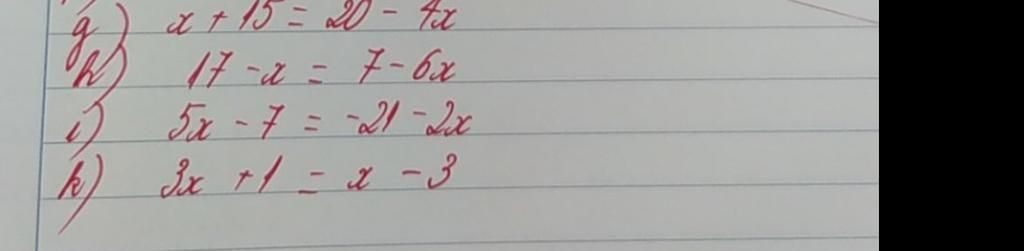 g) x + 15 = 20 - 4x
h) 17 - x = 7 - 6x
i) 5x - 7 = -21 - 2x
k) 3x + 1 = x - 3